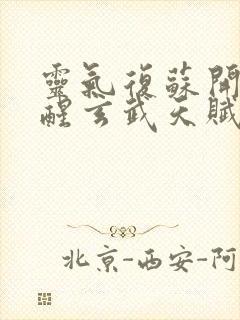 靈氣復蘇開
醒玄武天賦
北京-西安-阿